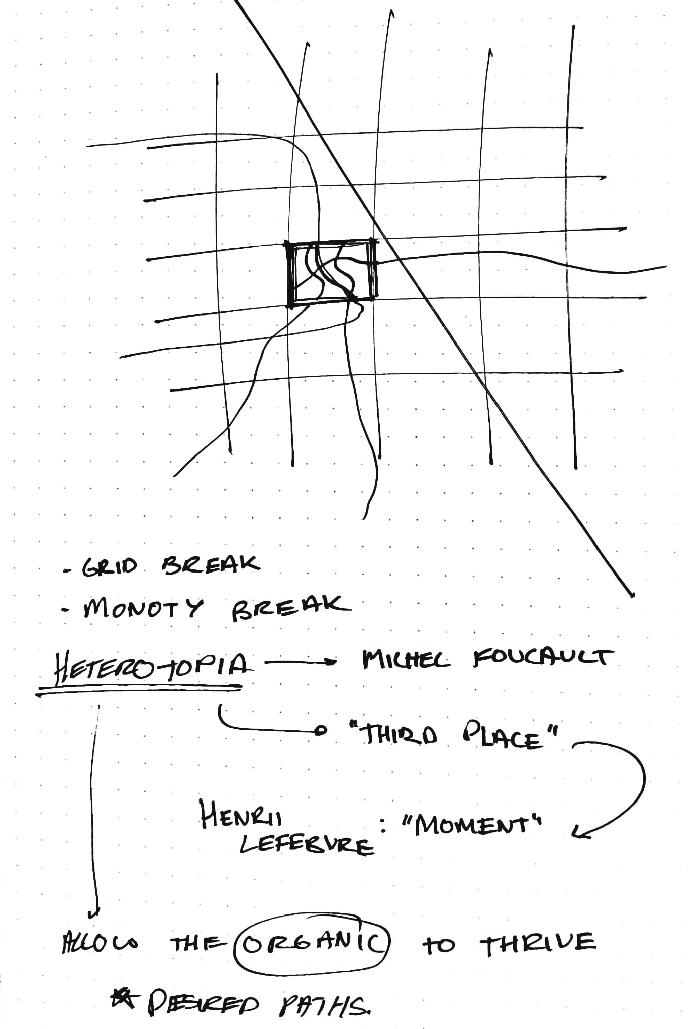 - GRID BREAK
- MONOTY BREAK
HETEROTOPIA → MICHEL FOUCAULT
"THIRD PLACE"
HENRII
LEFEBVRE : "MOMENT"
ALLOW THE ORGANIC TO THRIVE
* DESIRED PATHS.